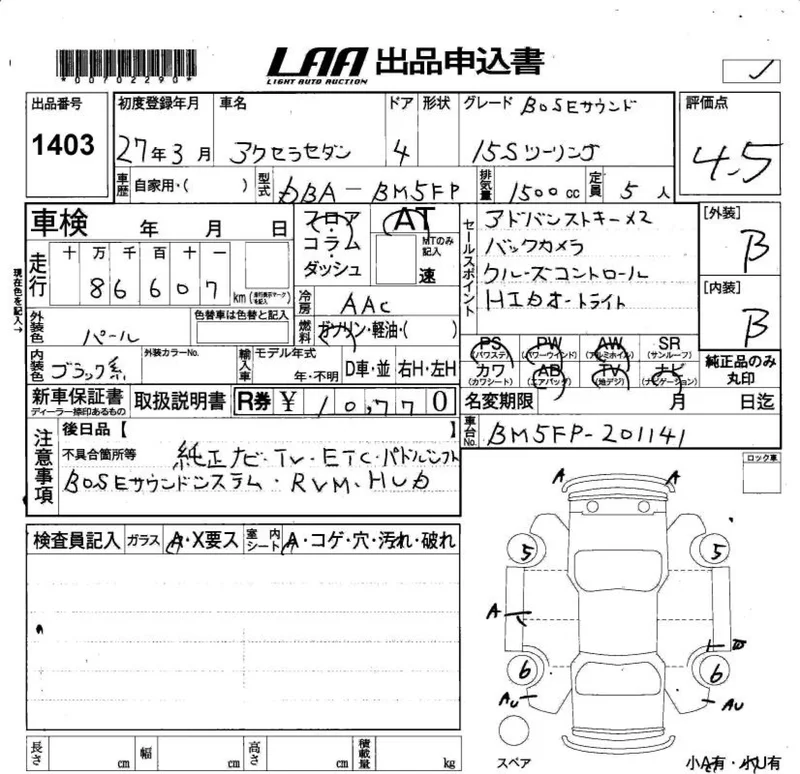 LAA 出品申込書
LIGHT AUTO AUCTION
*00702290*
出品番号 1403
初度登録年月 27年3月
車名 アクセラセダン
ドア 4
形状
グレード BOSEサウンド
15Sツーリング
評価点 4.5
車歴 自家用・( )
型式 DBA-BM5FP
排気量 1500cc
定員 5人
車検 年 月 日
フロア・コラム・ダッシュ
AT
MTのみ記入
速
セールスポイント
アドバンストキー×2
バックカメラ
クルーズコントロール
HIDオートライト
[外装] B
[内装] B
現在色を記入→
走行 十 万 千 百 十 一
86607 km
(走行表示マークを記入)
冷房 AAC
燃料 ガソリン・軽油・( )
外装色 パール
色替車は色替と記入
内装色 ブラック系
外装カラーNo.
輸入車 モデル年式
年・不明
D車・並
右H・左H
PS (パワステ)
PW (パワーウインド)
AW (アルミホイル)
SR (サンルーフ)
カワ (カワシート)
AB (エアバッグ)
TV (地デジ)
ナビ (ナビゲーション)
純正品のみ丸印
新車保証書
ディーラー捺印あるもの
取扱説明書
R券 ¥10,770
名変期限 月 日迄
車台No. BM5FP-201141
注意事項
後日品【
不具合箇所等 純正ナビ・TV・ETC・パドルシフト
BOSEサウンドシステム・RVM・HUD
ロック車
検査員記入 ガラス A・X要ス
室内シート A・コゲ・穴・汚れ・破れ
A A
5 5
A
6 6
AU AU
スペア
小A有・小U有
長さ cm 幅 cm 高さ cm 積載量 kg